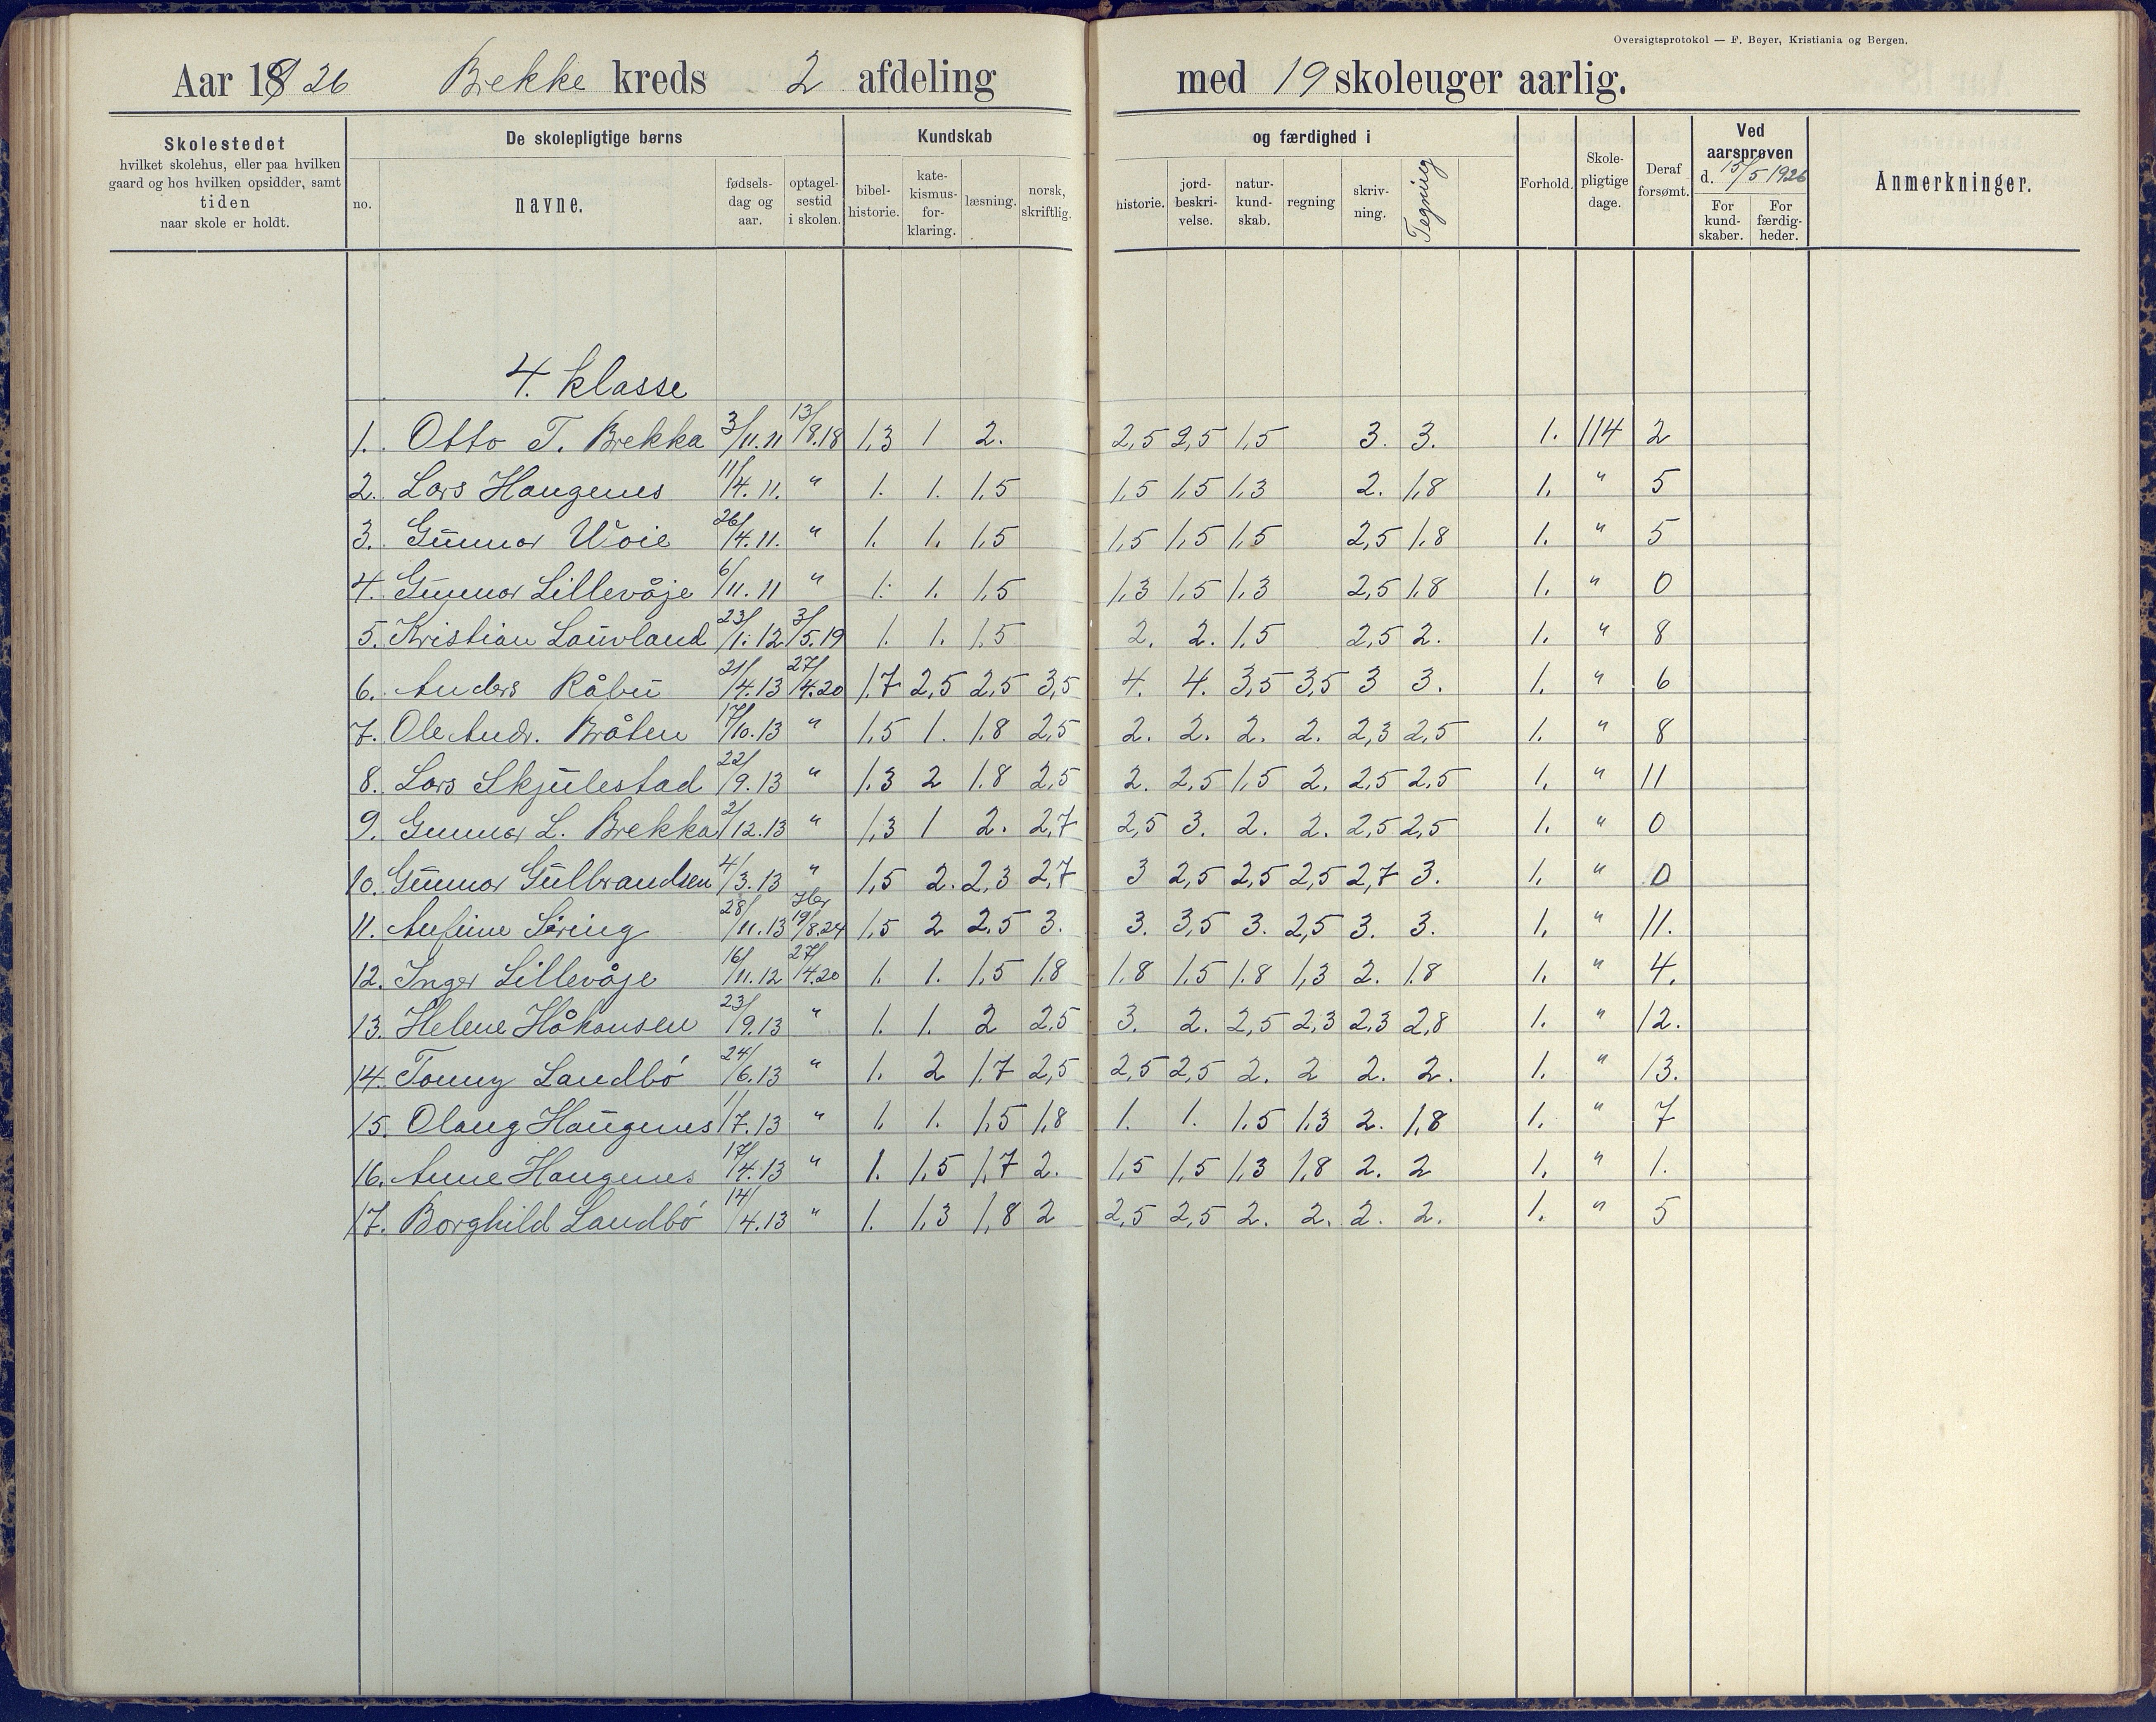 Oversigtsprotokol — F. Beyer, Kristiania og Bergen.
Aar 1926 Brekke kreds 2 afdeling med 19 skoleuger aarlig.
Skolestedet
hvilket skolehus, eller paa hvilken
gaard og hos hvilken opsidder, samt
tiden
naar skole er holdt.
De skolepligtige børns
no. navne. fødsels-dag og aar. optagel-sestid i skolen.
Kundskab og færdighed i
bibel-historie. kate-kismus-for-klaring. læsning. norsk, skriftlig. historie. jord-beskri-velse. natur-kund-skab. regning skriv-ning. Tegning
Forhold. Skole-pligtige dage. Deraf forsømt.
Ved aarsprøven d. 15/5 1926
For kund-skaber. For færdig-heder.
Anmerkninger.
4. klasse
1. Otto T. Brekka 3/11.11 13/8.18 1,3 1 2. 2,5 2,5 1,5 3. 3. 1. 114 2
2. Lars Haugenes 11/4.11. " 1. 1. 1,5 1,5 1,5 1,3 2. 1,8 1. " 5
3. Gunnar Woie 26/4.11. " 1. 1. 1,5 1,5 1,5 1,5 2,5 1,8 1. " 5
4. Gunnar Lillevåje 6/11.11 " 1. 1. 1,5 1,3 1,5 1,3 2,5 1,8 1. " 0
5. Kristian Lauvland 23/1.12 3/5.19 1. 1. 1,5 2. 2. 1,5 2,5 2. 1. " 8
6. Anders Råbu 21/4.13 27/4.20 1,7 2,5 2,5 3,5 4. 4. 3,5 3,5 3 3. 1. " 6
7. Ole Andr. Bråten 17/10.13 " 1,5 1. 1,8 2,5 2. 2. 2. 2. 2,3 2,5 1. " 8
8. Lars Skjulestad 22/9.13 " 1,3 2 1,8 2,5 2. 2,5 1,5 2. 2,5 2,5 1. " 11
9. Gunnar L. Brekka 2/12.13 " 1,3 1 2. 2,7 2,5 3. 2. 2. 2,5 2,5 1. " 0
10. Gunnar Gulbrandsen 4/3.13 " 1,5 2. 2,3 2,7 3 2,5 2,5 2,5 2,7 3. 1. " 0
11. Anfine 28/11.13 19/8.24 1,5 2 2,5 3. 3. 3,5 3. 2,5 3. 3. 1. " 11.
12. Inger Lillevåje 16/11.12 27/4.20 1. 1. 1,5 1,8 1,8 1,5 1,8 1,3 2. 1,8 1. " 4.
13. Helene Håkonsen 23/9.13 " 1. 1. 2 2,5 3. 2. 2,5 2,3 2,3 2,8 1. " 12.
14. Tonny Landbö 24/6.13 " 1. 2 1,7 2,5 2,5 2,5 2. 2 2. 2. 1. " 13.
15. Olaug Haugenes 1/7.13 " 1. 1. 1,5 1,8 1. 1. 1,5 1,3 2. 1,8 1. " 7
16. Anne Haugenes 17/4.13 " 1. 1,5 1,7 2. 1,5 1,5 1,3 1,8 2. 2 1. " 1.
17. Borghild Landbö 14/4.13 " 1. 1,3 1,8 2 2,5 2,5 2. 2. 2. 2. 1. " 5